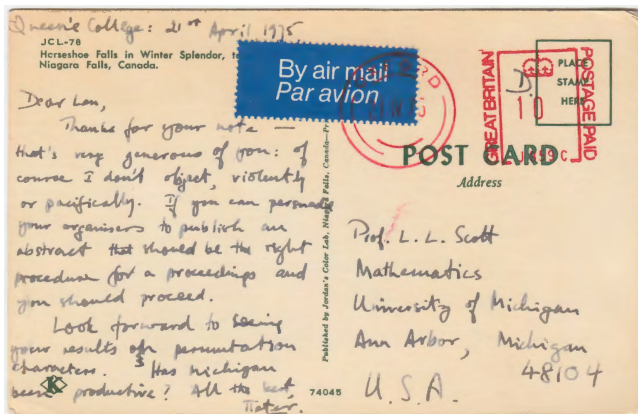 Queen's College: 21st April 1975
JCL-78
Horseshoe Falls in Winter Splendor,
Niagara Falls, Canada.
Dear Len,
Thanks for your note —
that's very generous of you: of
course I don't object, violently
or pacifically. If you can persuade
your organisers to publish an
abstract that should be the right
procedure for a proceedings and
you should proceed.
Look forward to seeing
your results on permutation
characters. Has Michigan
been productive? All the best,
Peter.
K
74045
Published by Jordan's Color Lab, Niagara Falls, Canada
By air mail
Par avion
GREAT BRITAIN
10
POSTAGE PAID
PLACE
STAMP
HERE
POST CARD
Address
Prof. L. L. Scott
Mathematics
University of Michigan
Ann Arbor, Michigan
48104
U.S.A.